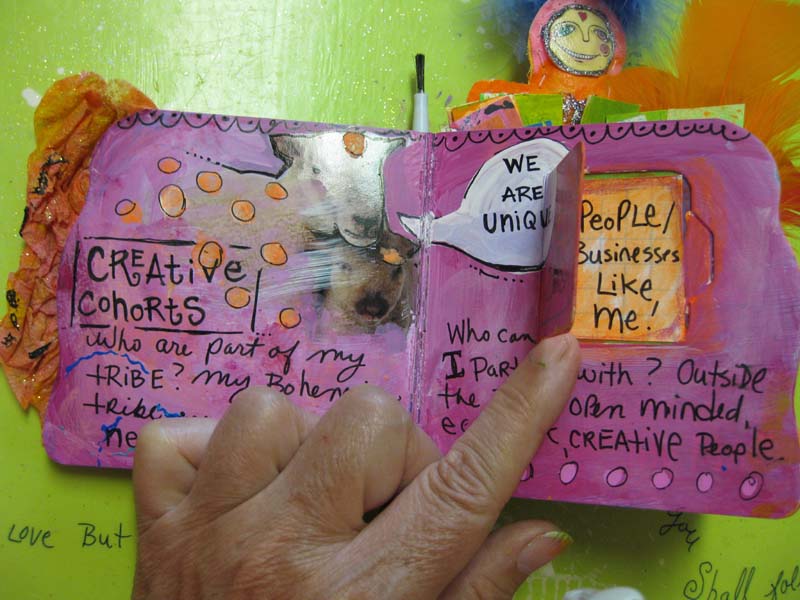 CREATIVE
COHORTS
Who are part of my
TRIBE? my
tribe......
WE
ARE
UNIQUE
PEOPLE/
Businesses
Like
me!
Who can
I with? Outside
the open minded,
CREATIVE People.
LOVE But
Shall